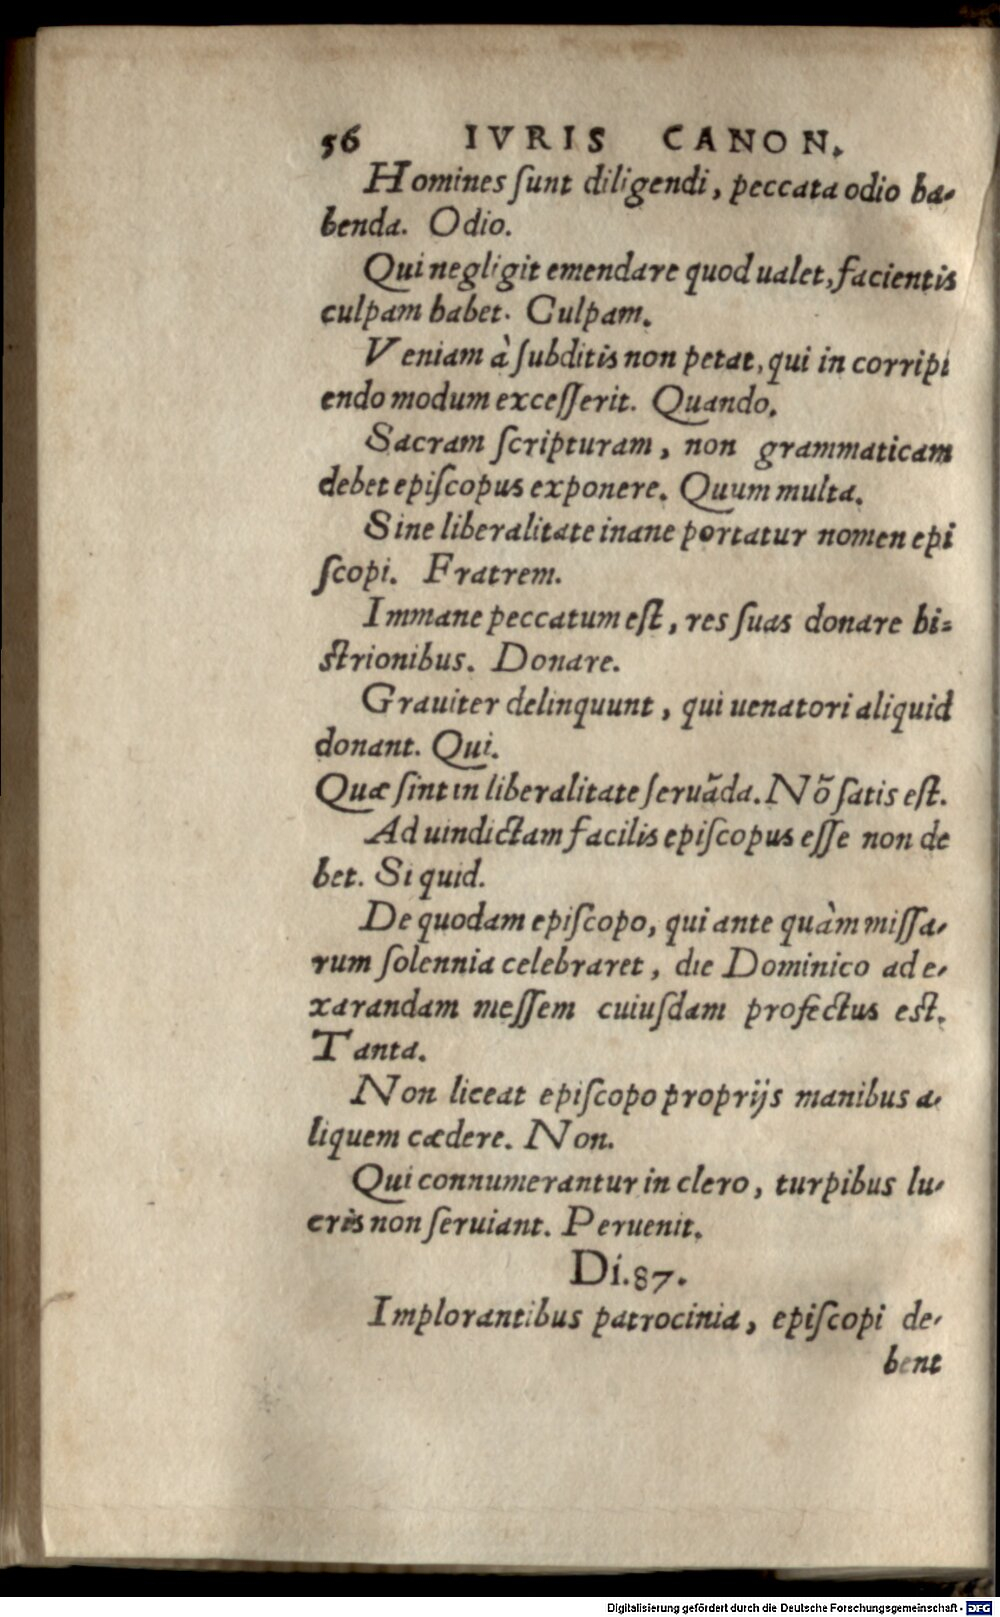 56 IVRIS CANON.
Homines ſunt diligendi, peccata odio ha-
benda. Odio.
Qui negligit emendare quod ualet, facientis
culpam habet. Culpam.
Veniam à ſubditis non petat, qui in corripi
endo modum exceſſerit. Quando.
Sacram ſcripturam, non grammaticam
debet epiſcopus exponere. Quum multa.
Sine liberalitate inane portatur nomen epi
ſcopi. Fratrem.
Immane peccatum eſt, res ſuas donare hi=
ſtrionibus. Donare.
Grauiter delinquunt, qui uenatori aliquid
donant. Qui.
Quæ ſint in liberalitate ſeruãda. Nõ ſatis eſt.
Ad uindictam facilis epiſcopus eſſe non de
bet. Si quid.
De quodam epiſcopo, qui ante quàm miſſa-
rum ſolennia celebraret, die Dominico ad e-
xarandam meſſem cuiuſdam profectus eſt.
Tanta.
Non liceat epiſcopo proprijs manibus a-
liquem cædere. Non.
Qui connumerantur in clero, turpibus lu-
cris non ſeruiant. Peruenit.
Di.87.
Implorantibus patrocinia, epiſcopi de-
bent
Digitalisierung gefördert durch die Deutsche Forschungsgemeinschaft - DFG